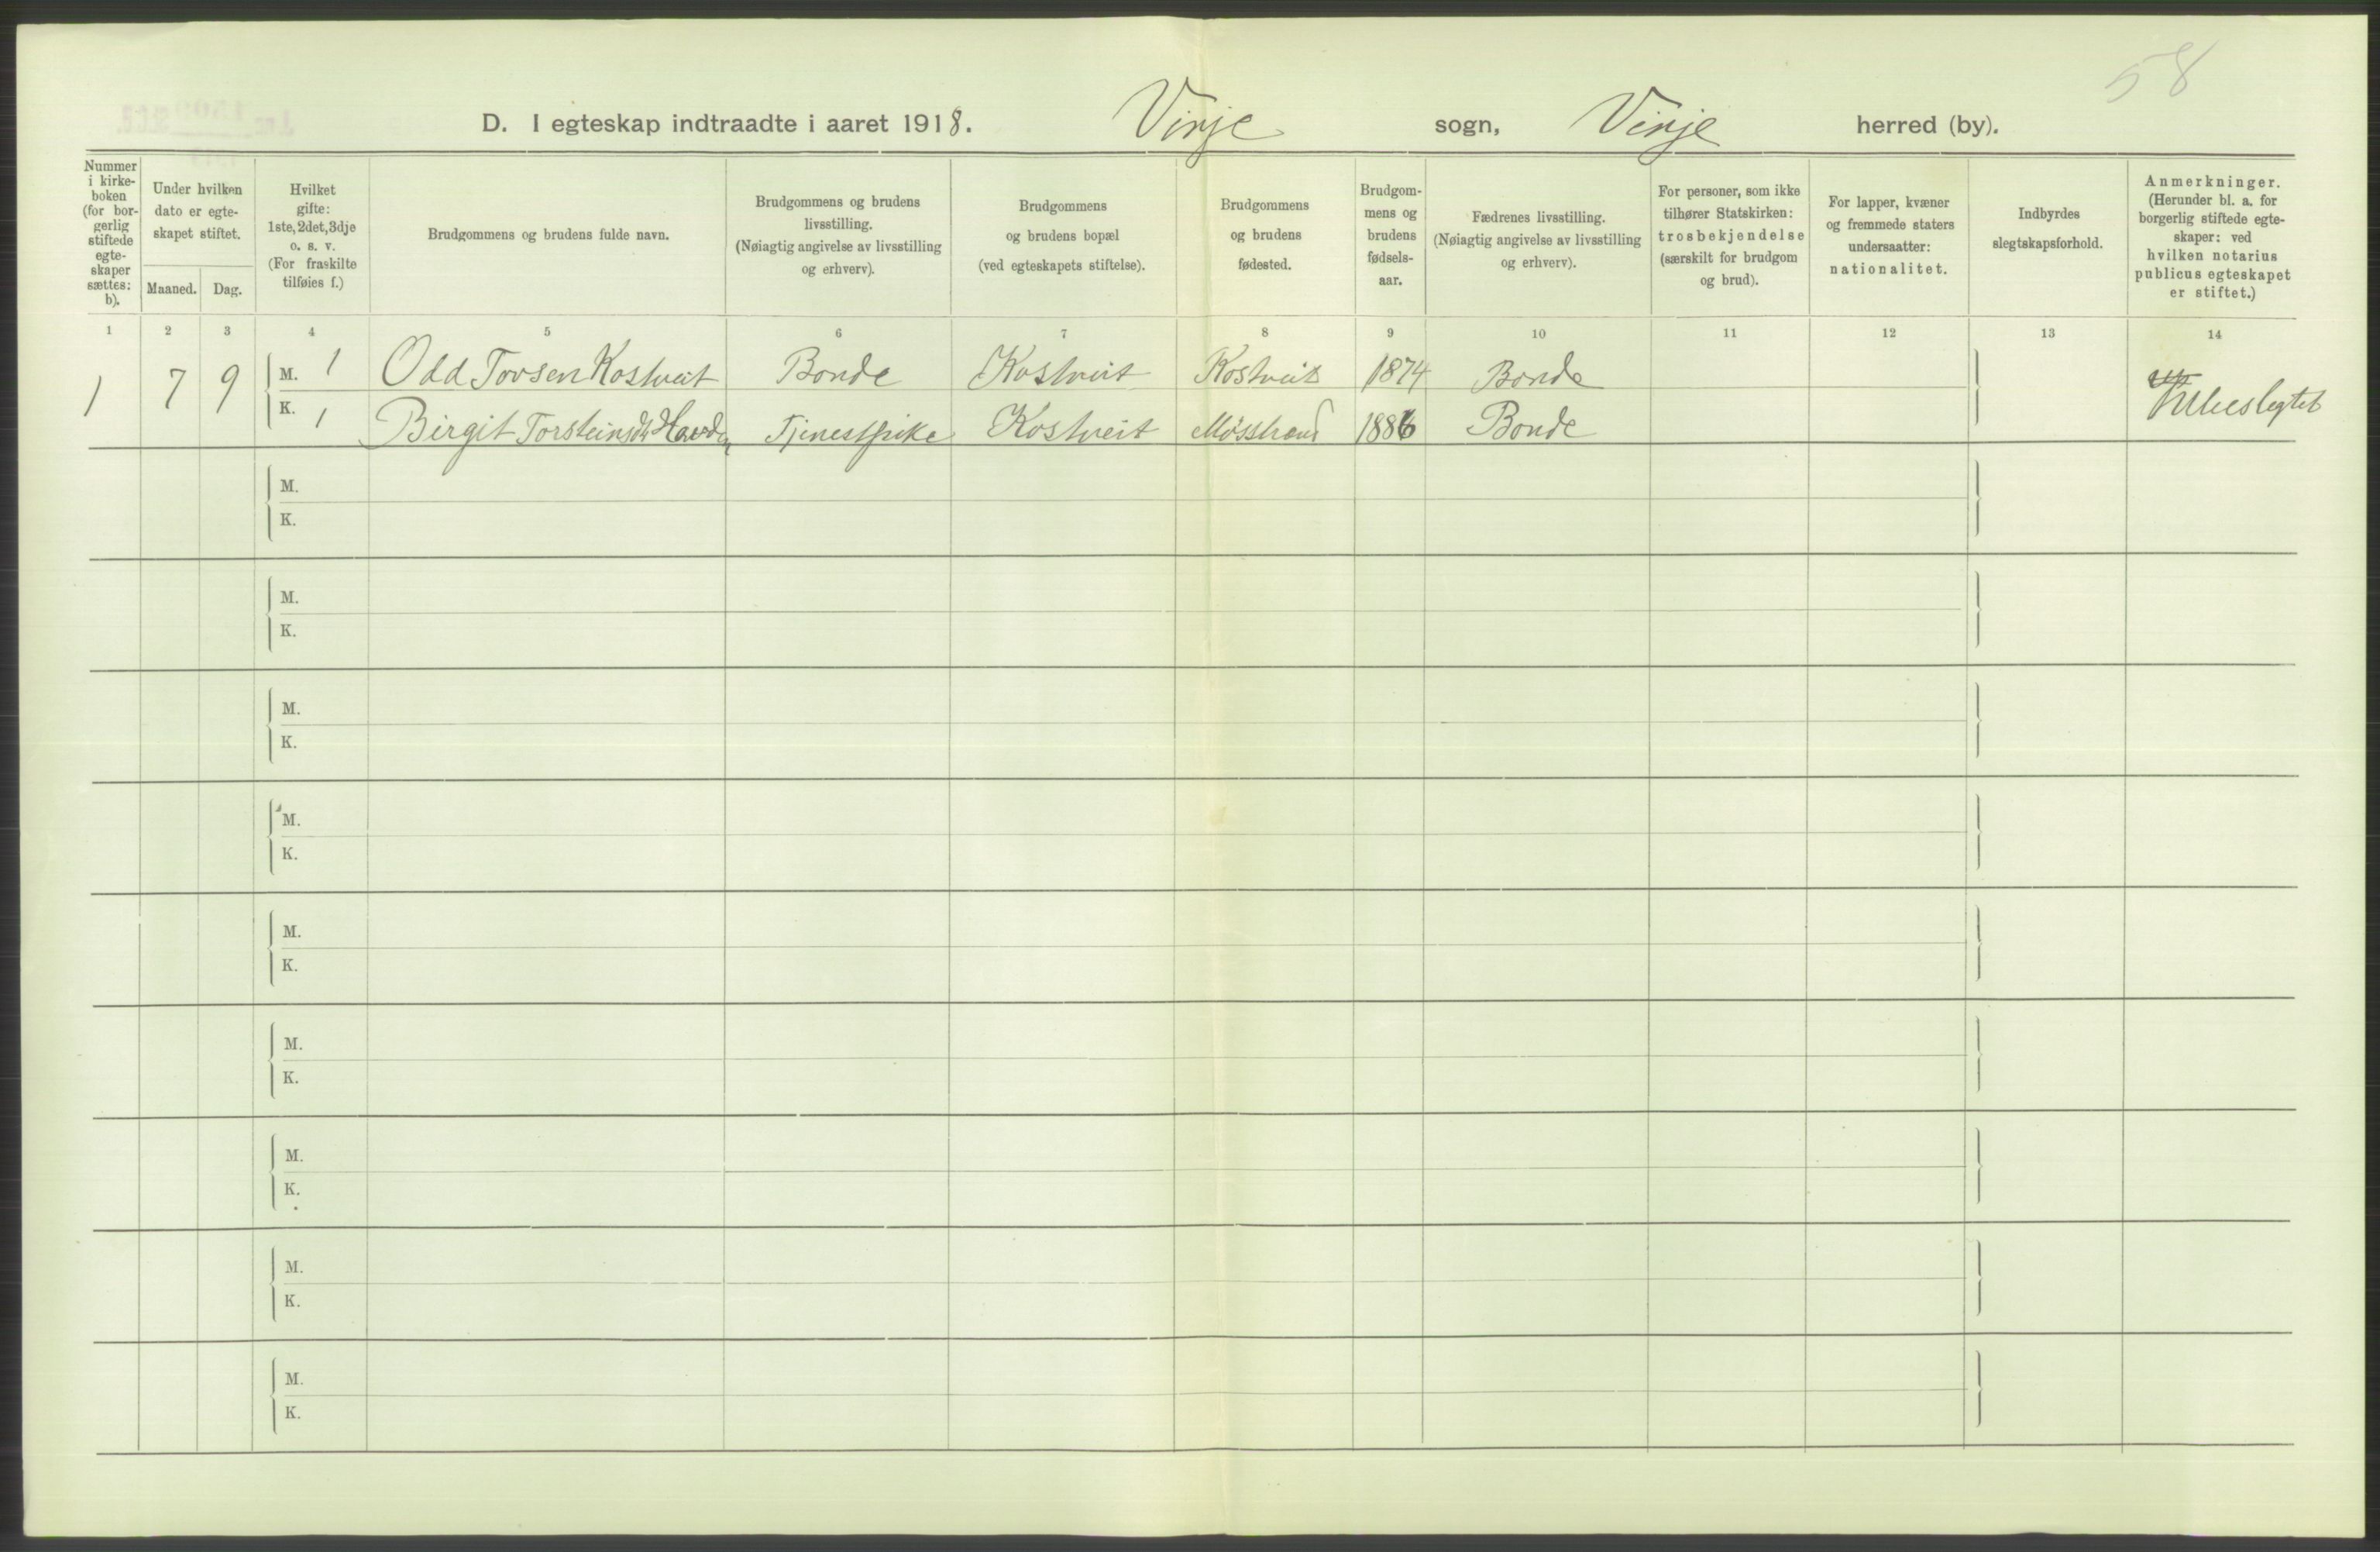 58
D. I egteskap indtraadte i aaret 1918. Vinje sogn, Vinje herred (by).
Nummer i kirke-boken (for bor-gerlig stiftede egte-skaper sættes: b).
Under hvilken dato er egte-skapet stiftet.
Maaned. Dag.
Hvilket gifte: 1ste, 2det, 3dje o. s. v. (For fraskilte tilføies f.)
Brudgommens og brudens fulde navn.
Brudgommens og brudens livsstilling. (Nøiagtig angivelse av livsstilling og erhverv).
Brudgommens og brudens bopæl (ved egteskapets stiftelse).
Brudgommens og brudens fødested.
Brudgom-mens og brudens fødsels-aar.
Fædrenes livsstilling. (Nøiagtig angivelse av livsstilling og erhverv).
For personer, som ikke tilhører Statskirken: trosbekjendelse (særskilt for brudgom og brud).
For lapper, kvæner og fremmede staters undersaatter: nationalitet.
Indbyrdes slegtskapsforhold.
Anmerkninger. (Herunder bl. a. for borgerlig stiftede egte-skaper: ved hvilken notarius publicus egteskapet er stiftet.)
1 2 3 4 5 6 7 8 9 10 11 12 13 14
1 7 9 M. 1 Odd Tovsen Kostveit Bonde Kostveit Kostveit 1874 Bonde
K. 1 Birgit Torsteinsdt Tjenestpike Kostveit Møsstrand 1886 Bonde
M.
K.
M.
K.
M.
K.
M.
K.
M.
K.
M.
K.
M.
K.
M.
K.
M.
K.